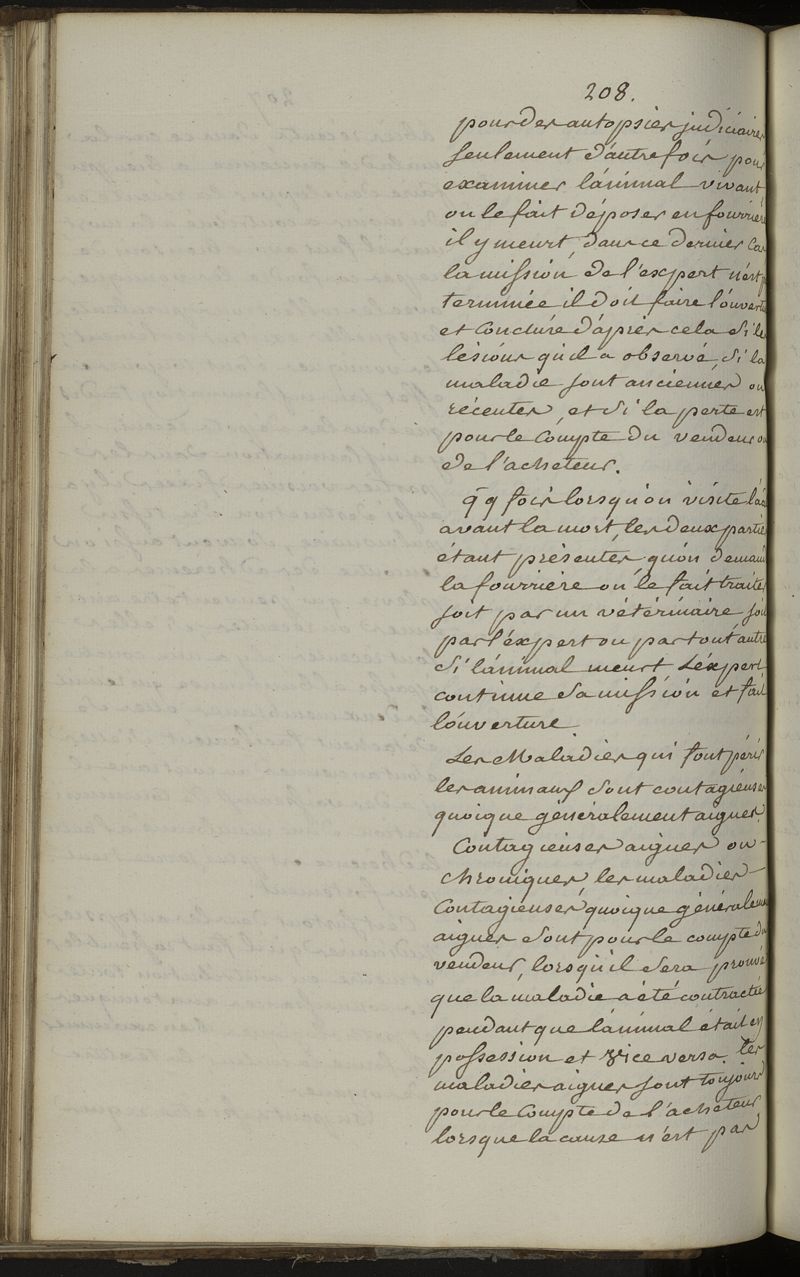 208.
pour des autopsies judiciaires
seulement d'autre fois pour
examiner lánimal vivant
on le fait déposer en fourriére
il y meurt, dans ce dernier Cas
la mission de l'expert n'est p
terminée il doit faire l'ouvert
et Conclure d'áprés cela Si le
lésions qu'il a observé, Si la
maladie sont anciennes ou
récentes, et Si la perte est
pour le Compte du vendeur ou
de l'acheteur.
qq fois lorsqu'on visite lá
avant la mort, les deux partie
étant présentes quón demand
la fourriére on le fait traiter
soit par un vétérinaire soit
par l'éxpert ou par tout autre
Si lánimal meurt L'éxpert
continue Sa mission et fait
lóuverture.
Les Maladies qui font périr
les animaux Sont contagieuses
quoique généralement aigues.
Contagieuses aigues ou
chroniques, les maladies
Contagieuses quoique généralemen
aigues Sont pour le compte du
vendeur, lorsqu'il Sera prouvé
que la maladie a été contractée
pendant que lánimal était en
possession et vice versa. les
maladies aigues sont toujours
pour le Compte de l'acheteur,
lorsque la cause n'est pas